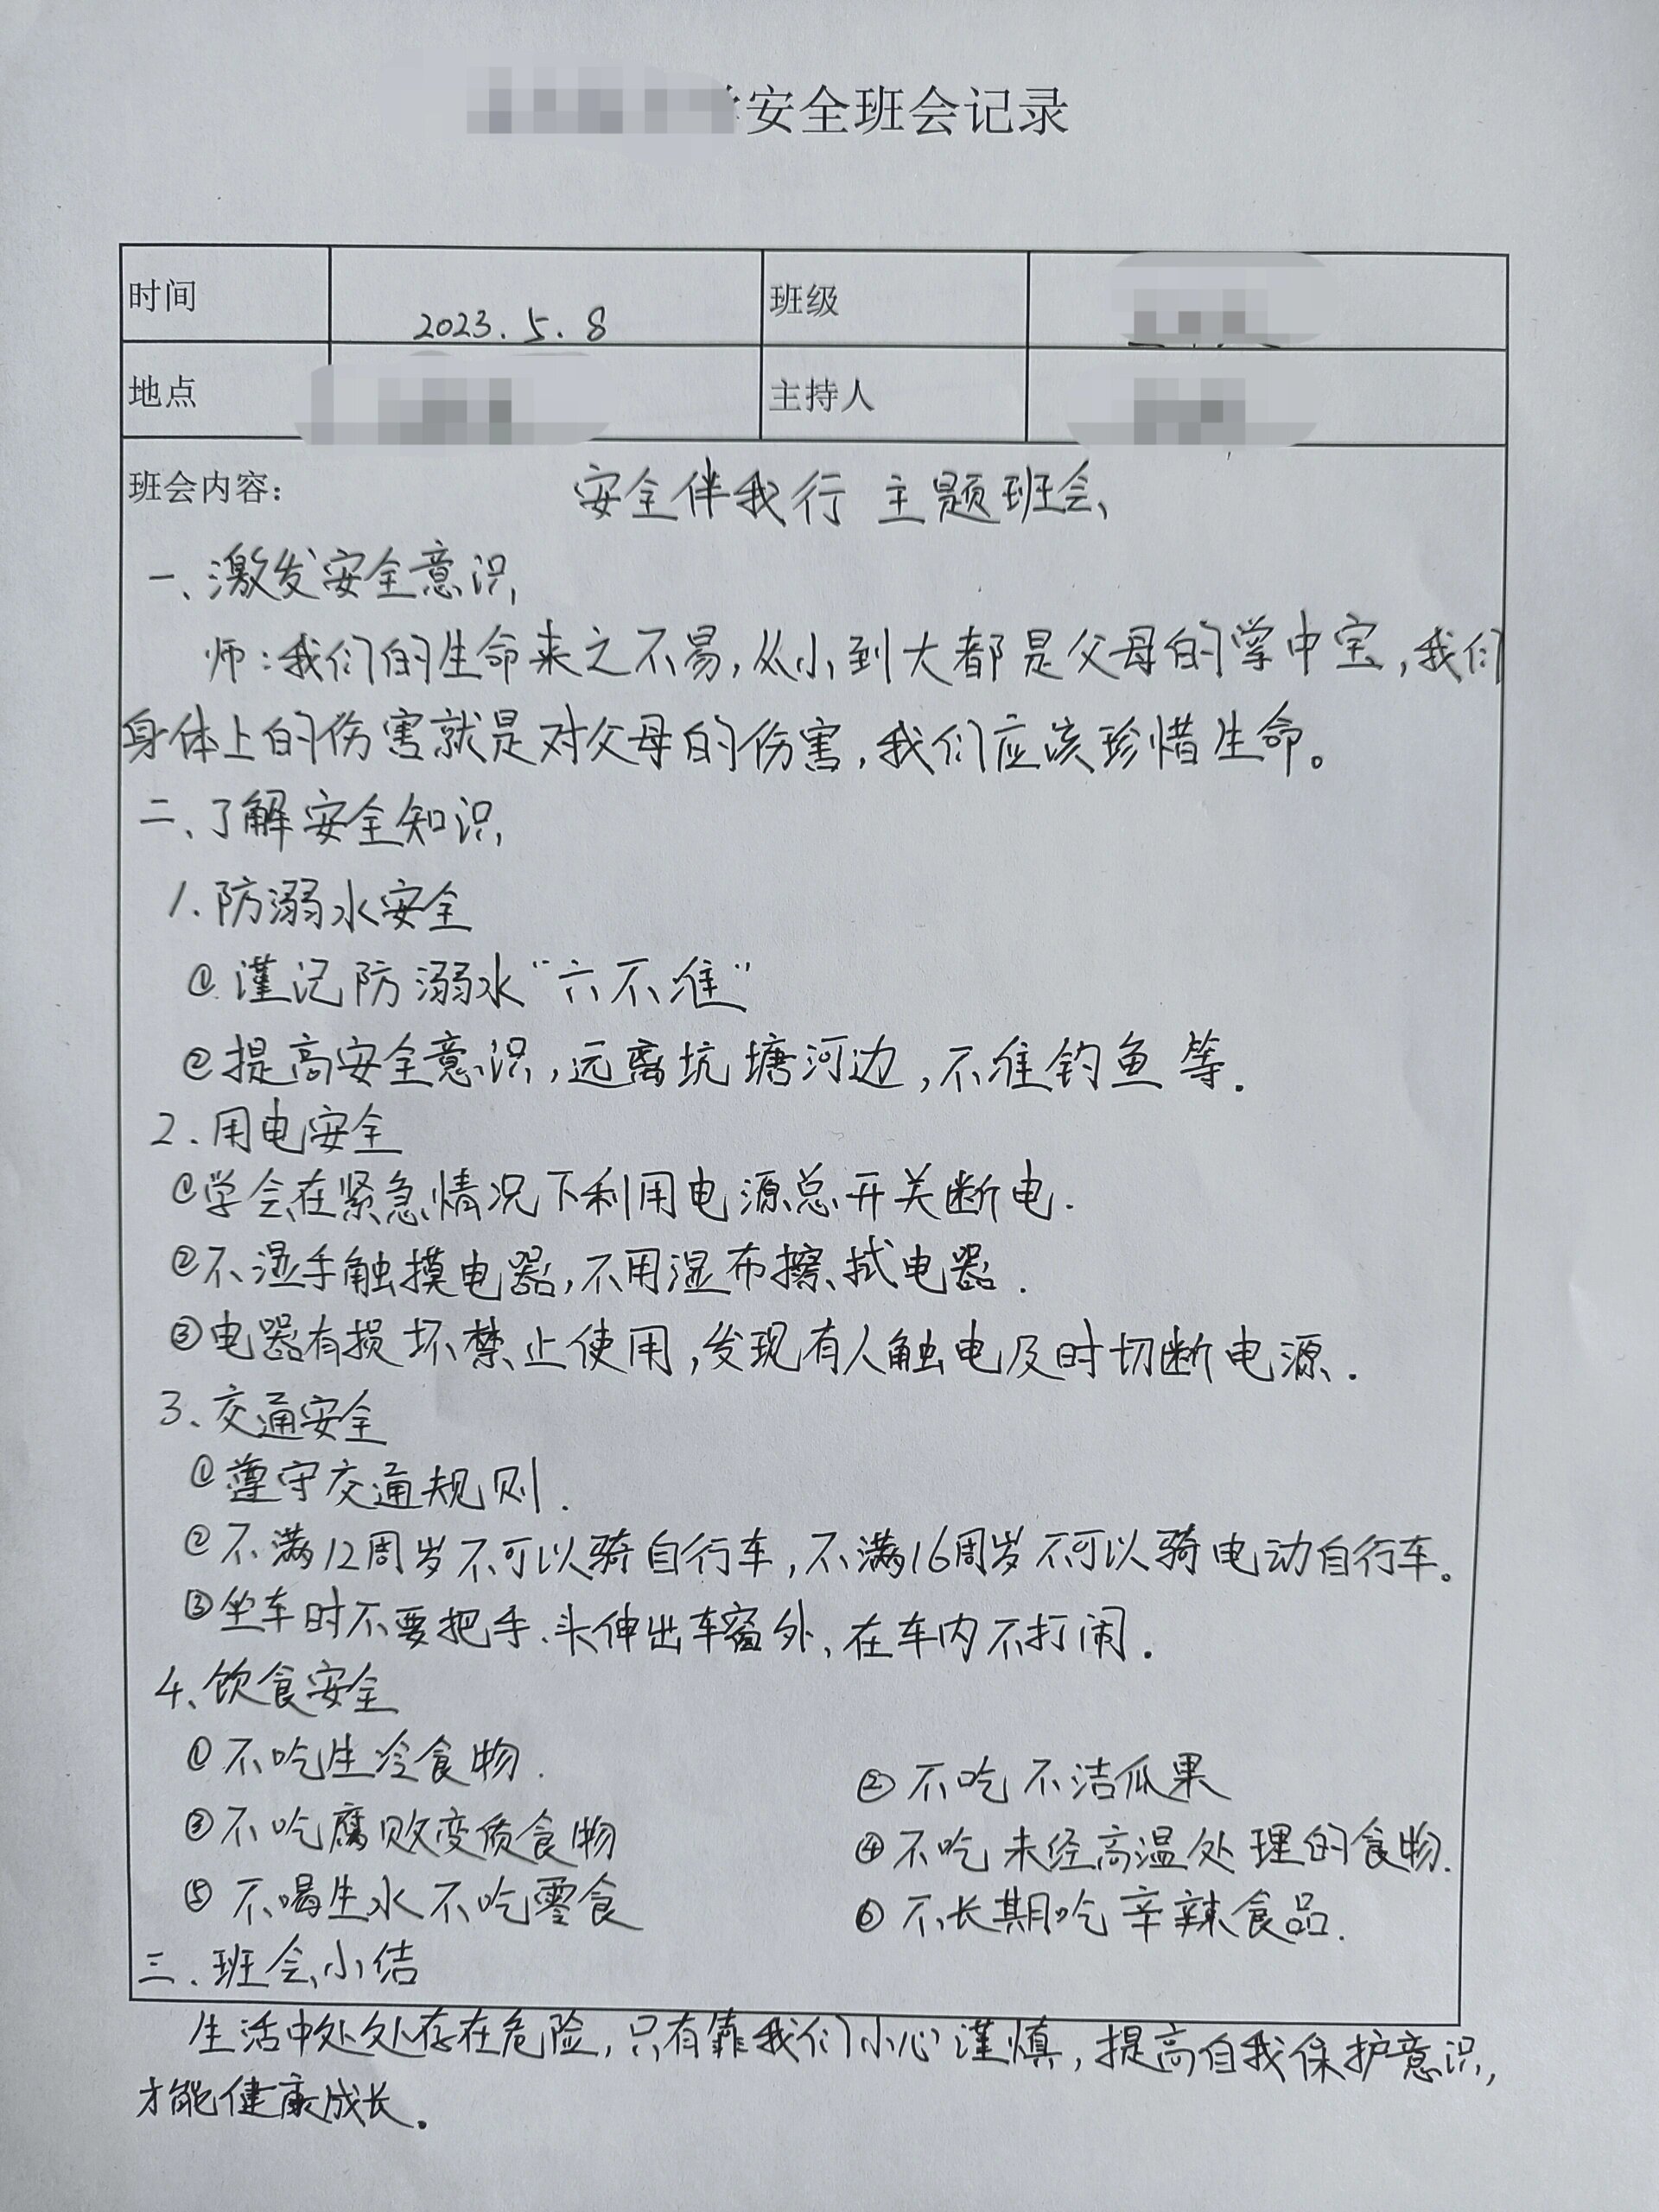 安全班会记录
时间 2023.5.8 班级
地点 主持人
班会内容: 安全伴我行 主题班会
一、激发安全意识
师:我们的生命来之不易,从小到大都是父母的掌中宝,我们
身体上的伤害就是对父母的伤害,我们应该珍惜生命。
二、了解安全知识
1.防溺水安全
①谨记防溺水“六不准”
②提高安全意识,远离坑塘河边,不准钓鱼等.
2.用电安全
①学会在紧急情况下利用电源总开关断电.
②不湿手触摸电器,不用湿布擦拭电器.
③电器有损坏禁止使用,发现有人触电及时切断电源.
3、交通安全
①遵守交通规则.
②不满12周岁不可以骑自行车,不满16周岁不可以骑电动自行车。
③坐车时不要把手、头伸出车窗外,在车内不打闹.
4、饮食安全
①不吃生冷食物. ②不吃不洁瓜果
③不吃腐败变质食物 ④不吃未经高温处理的食物.
⑤不喝生水不吃零食 ⑥不长期吃辛辣食品.
三.班会小结
生活中处处存在危险,只有靠我们小心谨慎,提高自我保护意识,
才能健康成长。